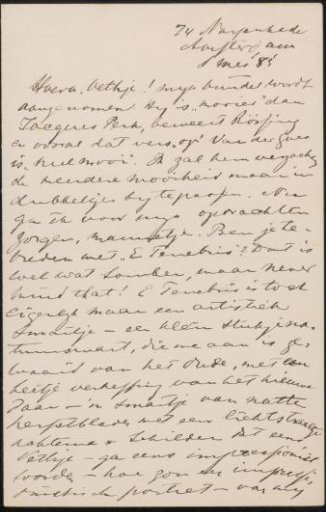 74 Marnixkade
Amsterdam
Mei '85
Hoera, Vethje! mijn bundel wordt
aangenomen. Hij is "mooier" dan
Jacques Perk, beweert Rössing
en vooral dat vers op Van der Goes
is "heel mooi". Ik zal hem verzoeken
de mindere mooiheid maar in
dubbeltjes bij te passen. Nu
ga ik voor mijn opdrachten
zorgen, mannetje. Ben je te-
vreden met "E Tenebris"? Dat is
wel wat somber, maar never
mind that! E Tenebris is toch
eigenlijk maar een artistiek
smartje - een klein stukje na-
tuursmart, die me aan is ge-
waaid van het Oude, met een
beetje verheffing van het nieuwe
Jaar - 'n smartje van natte
herfstbladen met een lichtstraaltje
achteraan. Schilder dat eens
Vethje - ga eens impressionist
worden - hoe zou een impressi-
onistisch portret van mij